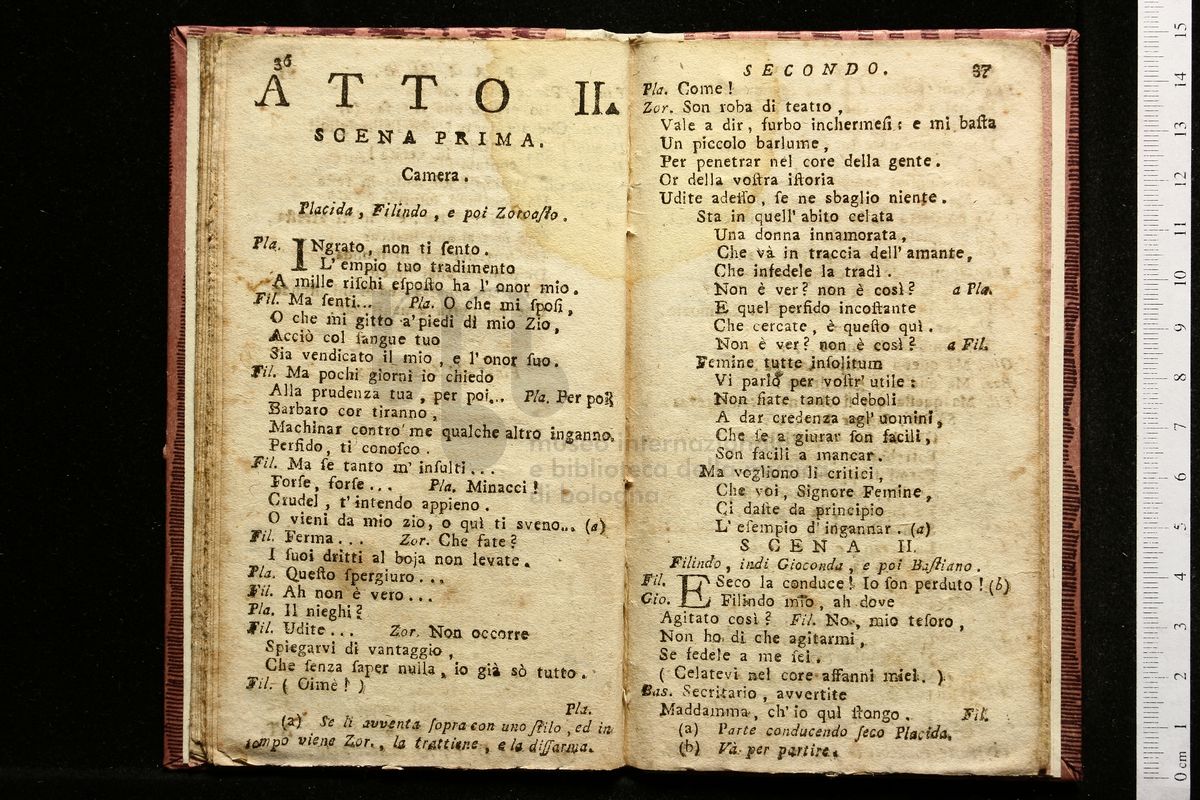 36
ATTO II.
SCENA PRIMA.
Camera.
Placida, Filindo, e poi Zoroaſto.
Pla. INgrato, non ti ſento.
L' empio tuo tradimento
A mille riſchi eſpoſto ha l' onor mio.
Fil. Ma ſenti... Pla. O che mi ſpoſi,
O che mi gitto a' piedi di mio Zio,
Acciò col ſangue tuo
Sia vendicato il mio, e l' onor ſuo.
Fil. Ma pochi giorni io chiedo
Alla prudenza tua, per poi... Pla. Per poi?
Barbaro cor tiranno,
Machinar contro me qualche altro inganno.
Perfido, ti conoſco.
Fil. Ma ſe tanto m' inſulti...
Forſe, forſe... Pla. Minacci!
Crudel, t' intendo appieno.
O vieni da mio zio, o quì ti sveno... (a)
Fil. Ferma... Zor. Che fate?
I ſuoi dritti al boja non levate.
Pla. Queſto ſpergiuro...
Fil. Ah non è vero...
Pla. Il nieghi?
Fil. Udite... Zor. Non occorre
Spiegarvi di vantaggio,
Che ſenza ſaper nulla, io già sò tutto.
Fil. ( Oimè! )
Pla.
(a) Se li avventa ſopra con uno ſtilo, ed in
tempo viene Zor., la trattiene, e la diſſarma.
SECONDO. 37
Pla. Come!
Zor. Son roba di teatro,
Vale a dir, furbo inchermeſi: e mi baſta
Un piccolo barlume,
Per penetrar nel core della gente.
Or della voſtra iſtoria
Udite adeſſo, ſe ne sbaglio niente.
Sta in quell' abito celata
Una donna innamorata,
Che và in traccia dell' amante,
Che infedele la tradì.
Non è ver? non è così? a Pla.
E quel perfido incoſtante
Che cercate, è queſto quì.
Non è ver? non è così? a Fil.
Femine tutte inſolitum
Vi parlo per voſtr' utile:
Non ſiate tanto deboli
A dar credenza agl' uomini,
Che ſe a giurar ſon facili,
Son facili a mancar.
Ma vogliono li critici,
Che voi, Signore Femine,
Ci daſte da principio
L' eſempio d' ingannar. (a)
SCENA II.
Filindo, indi Gioconda, e poi Baſtiano.
Fil. E Seco la conduce! Io ſon perduto! (b)
Gio. Filindo mio, ah dove
Agitato così? Fil. No, mio teſoro,
Non ho di che agitarmi,
Se fedele a me ſei.
( Celatevi nel core affanni miei. )
Bas. Secritario, avvertite
Maddamma, ch' io quì ſtongo. Fil.
(a) Parte conducendo ſeco Placida.
(b) Và per partire.
museo internazionale
e biblioteca della musica
di bologna
15
14
13
12
11
10
9
8
7
6
5
4
3
2
1
0 cm